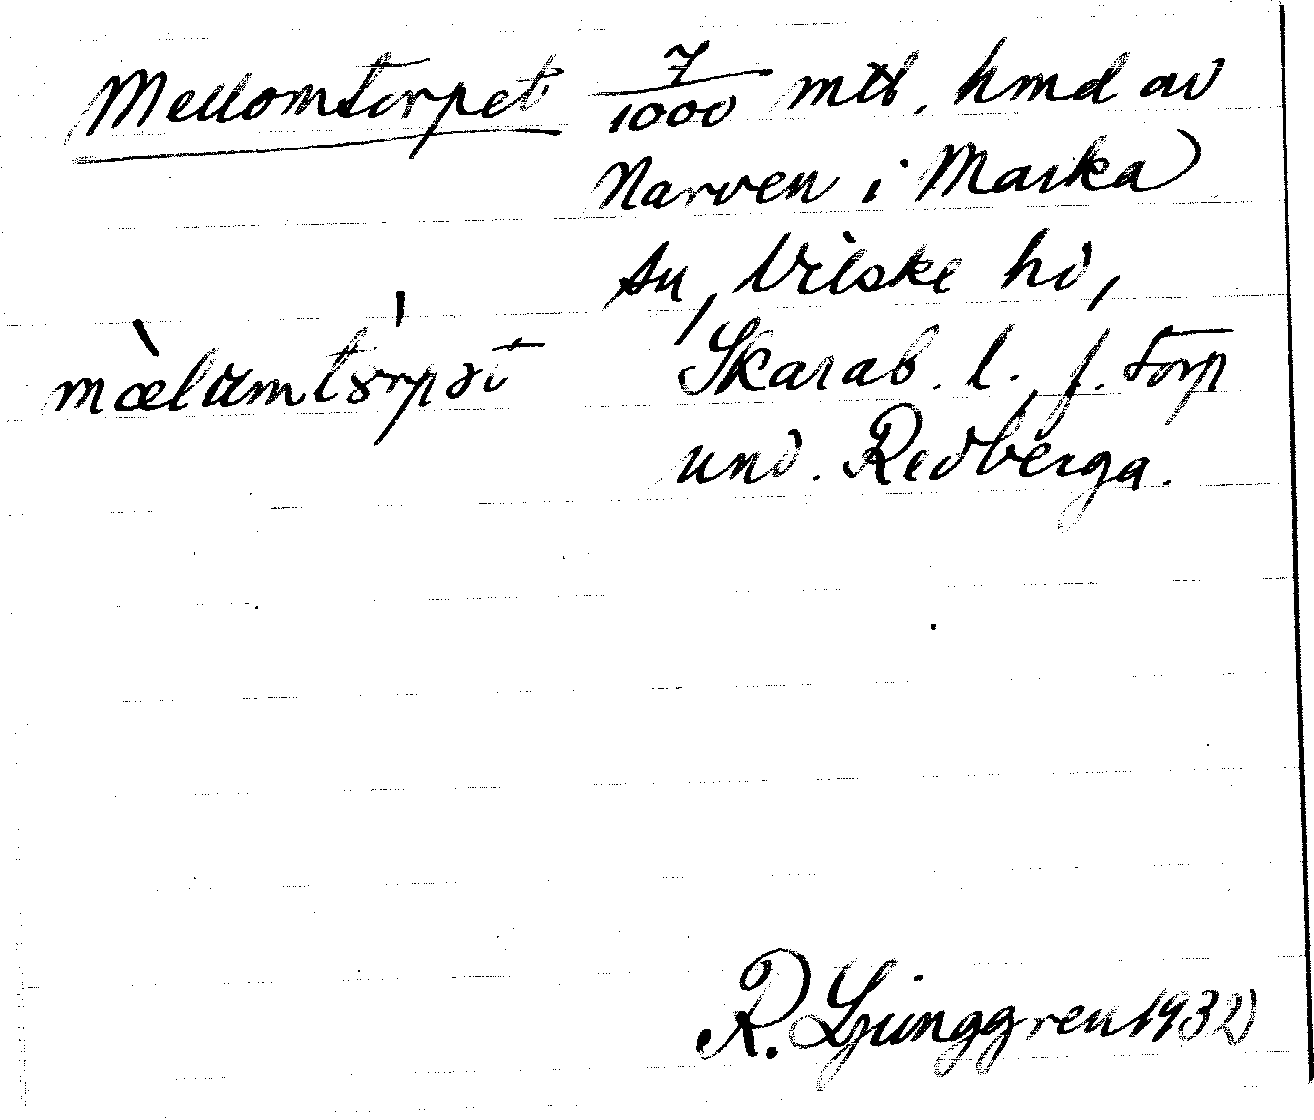 Mellomtorpet 7/1000 mtl. hmd av
Narven i Marka
sn, Vilske hd,
mæl̀ɯmtɤ́rpət Skarab. l. f. torp
und. Redberga.
R. Ljunggren 1932